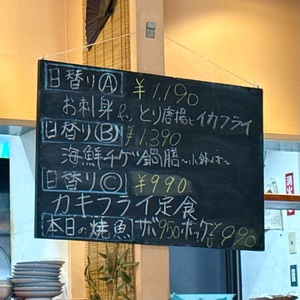 日替り Ⓐ ¥1,190
お刺身&とり唐揚とイカフライ
日替り Ⓑ ¥1390
海鮮チゲ鍋膳〜小鉢付〜
日替り Ⓒ ¥990
カキフライ定食
本日の焼魚 サバ950 ホッケ 990